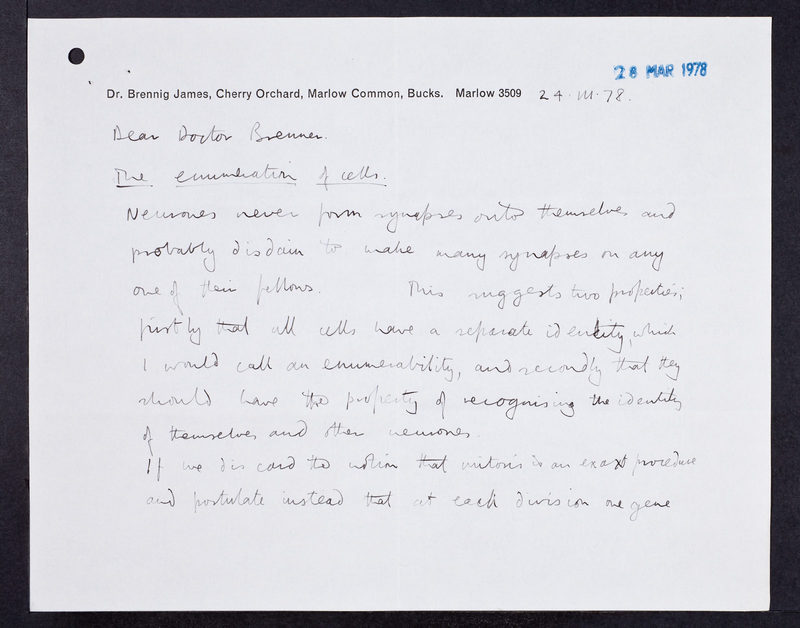 28 MAR 1978
Dr. Brennig James, Cherry Orchard, Marlow Common, Bucks. Marlow 3509 24.III.78.
Dear Doctor Brenner.
The enumeration of cells.
Neurones never form synapses onto themselves and
probably disdain to make many synapses on any
one of their fellows. This suggests two properties;
firstly that all cells have a separate identity, which
I would call an enumerability, and secondly that they
should have the property of recognising the identity
of themselves and other neurones.
If we discard the notion that mitosis is an exact procedure
and postulate instead that at each division one gene